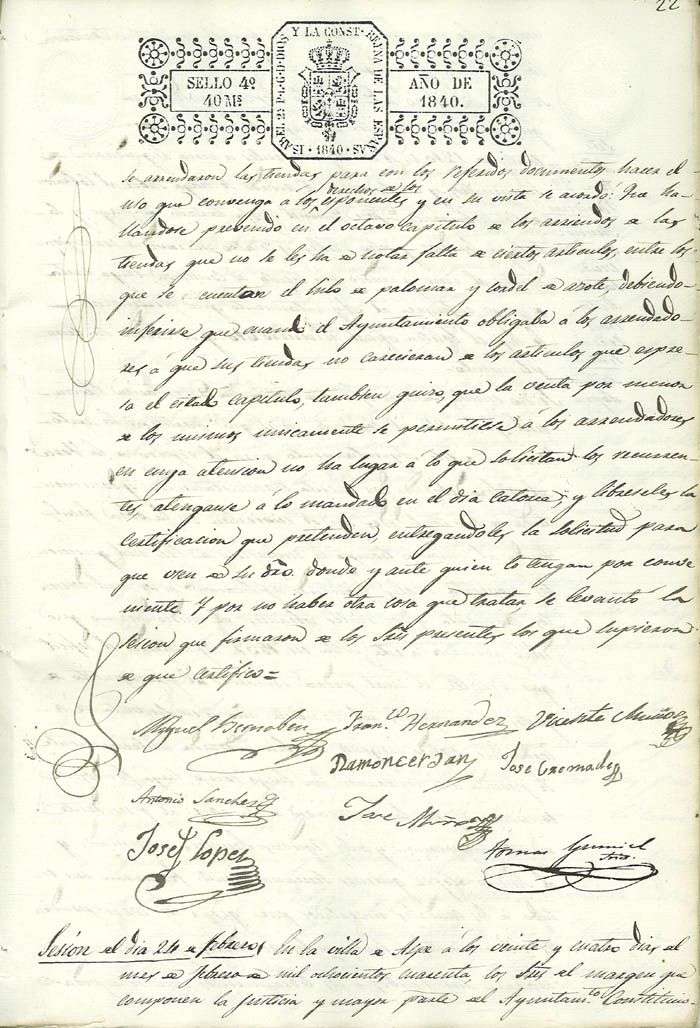 22
ISABEL 2ª P. L. G. D. DIOS Y LA CONST. REYNA DE LAS ESPAÑAS
SELLO 4º
40 Ms
AÑO DE
1840.
· 1840 ·
se arrendaron las tiendas para con los referidos documentos hacer el
derechos de los
uso que convenga á los esponentes y en su vista se acordó: Que ha-
llandose prevenido en el octavo capitulo de los arriendos de las
tiendas que no se les ha de notar falta de ciertos articulos, entre los
que se cuentan el hilo de palomar y cordel de azote, debiendo
inferirse que cuando el Ayuntamiento obligaba á los arrendado-
res á que sus tiendas no carecieran de los articulos que espre-
sa el citado capitulo, tambien quiso, que la venta por menor
de los mismos unicamente se permitiese á los arrendadores
en cuya atencion no ha lugar á lo que solicitan los recurren-
tes, atenganse á lo mandado en el dia catorce, y libreseles la
certificacion que pretenden entregandoles la solicitud para
que usen de su dro. donde y ante quien lo tengan por conve
niente. Y por no haber otra cosa que tratar se levantó la
sesion que firmaron de los Sres presentes los que supieron
de que certifico=
Miguel Bernabeu Fran.co Hernandez Vicente Muñoz
Ramon Cerdan Jose Cremades
Antonio Sanchez
Jose Muñoz
Josef Lopez
Tomas Gumiel
Srio.
Sesión del dia 24 de febrero, En la villa de Aspe á los veinte y cuatro dias del
mes de febrero de mil ochocientos cuarenta, los Sres del margen que
componen la Justicia y mayor parte del Ayuntam.to Constitucio-